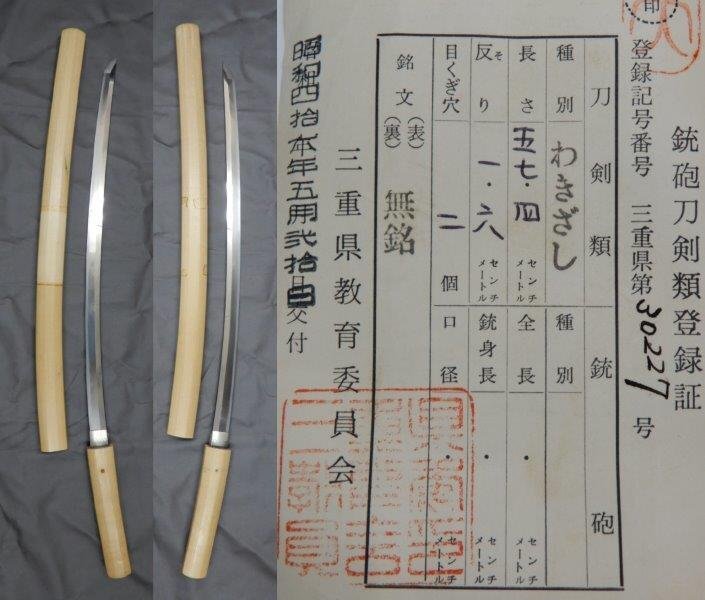 銃砲刀剣類登録証
登録記号番号 三重県第30227号
刀剣類 銃砲
種別 わきざし 種別
長さ 五七・四 センチメートル 全長 ・ センチメートル
反り そ 一・六 センチメートル 銃身長 ・ センチメートル
目くぎ穴 二個 口径 ・ センチメートル
銘文 (表) (裏) 無銘
三重県教育委員会
交付
印